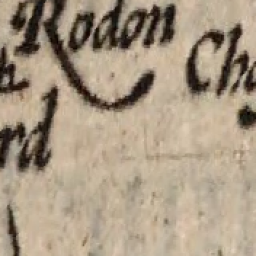 Rodon
Ch
rd